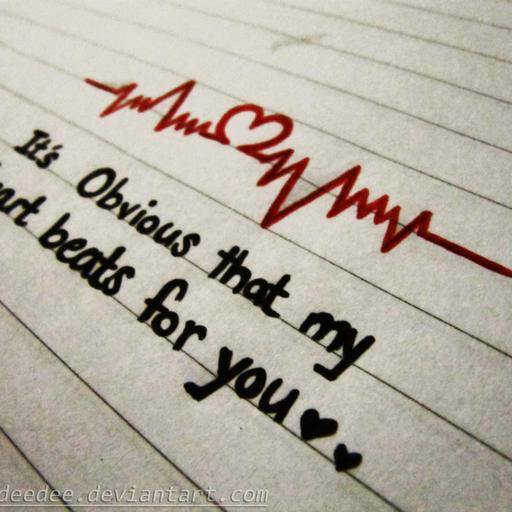 It's Obvious that my
art beats for you
deedee.deviantart.com